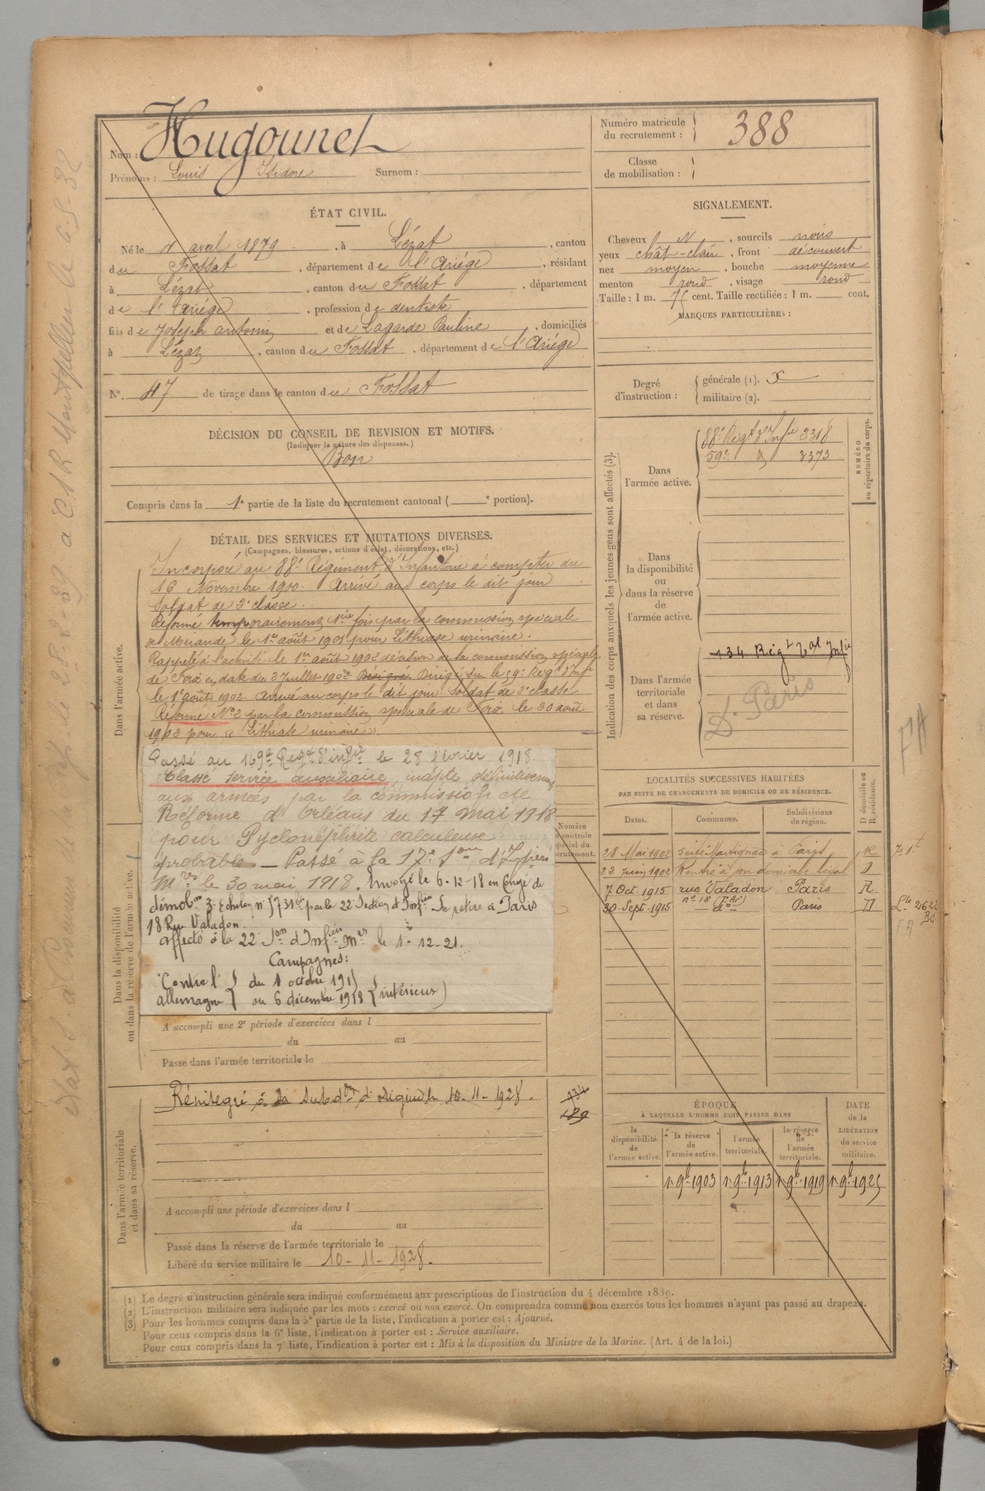 Nom : Hugounet
Prénoms : Louis Isidore Surnom :
Numéro matricule du recrutement : 388
Classe de mobilisation :
ÉTAT CIVIL.
Né le 1 avril 1879, à Lézat, canton
du Fossat, département de l'Ariége, résidant
à Lézat, canton du Fossat, département
de l'Ariége, profession de dentiste
fils de Joseph antonin et de Lagarde Pauline, domiciliés
à Lézat, canton du Fossat, département de l'Ariége
N° 47 de tirage dans le canton du Fossat
DÉCISION DU CONSEIL DE REVISION ET MOTIFS.
(Indiquer la nature des dispenses.)
Bon
Compris dans la 1e partie de la liste du recrutement cantonal ( e portion).
SIGNALEMENT.
Cheveux N, sourcils noirs
yeux chât-clair, front découvert
nez moyen, bouche moyenne
menton rond, visage rond
Taille : 1 m. 75 cent. Taille rectifiée : 1 m. cent.
MARQUES PARTICULIÈRES :
Degré d'instruction : générale (1). X
militaire (2).
DÉTAIL DES SERVICES ET MUTATIONS DIVERSES.
(Campagnes, blessures, actions d'éclat, décorations, etc.)
Dans l'armée active.
Incorporé au 88e Régiment d'Infanterie à compter du
16 Novembre 1900. Arrivé au corps le dit jour
Soldat de 2e classe.
Réformé temporairement 1ère fois par la commission spéciale
de Mirande le 1er août 1901 pour Lithiase urinaire.
Rappelé à l'activité le 1er août 1902 décision de la commission spéciale
de Foix en date du 2 Juillet 1902 Dirigé sur le 59e Régt d'Inf
le 1er août 1902 arrivé au corps le dit jour Soldat de 2e classe
Réformé N°2 par la commission spéciale de Foix le 30 août
1903 pour "Lithiase urinaire"
Passé au 159e Régt d'infie le 28 février 1918
Classé service auxiliaire, inapte définitivement
aux armées par la commission de
Réforme d'Orléans du 17 mai 1918
pour Pyélonéphrite calculeuse
probable — Passé à la 17e Son d'Infiers
Mres le 30 mai 1918. Envoyé le 6-12-18 en Congé de
démobon 3e Echelon n° 5731 par la 22e Section d'Infiers Se retire à Paris
18 Rue Valadon.
affecté à la 22e Son d'Infiers Mres le 1-12-21.
Campagnes:
Contre l'allemagne du 1 octobre 1915 au 6 décembre 1918 (intérieur)
Dans la disponibilité ou dans la réserve de l'armée active.
A accompli une 2e période d'exercices dans l
du au
Passé dans l'armée territoriale le
Dans l'armée territoriale et dans sa réserve.
Réintegré à la Subdon d'origine le 10-11-1928.
134
A accompli une période d'exercices dans l
du au
Passé dans la réserve de l'armée territoriale le
Libéré du service militaire le 10-11-1928.
Indication des corps auxquels les jeunes gens sont affectés (3).
NUMÉRO au répertoire du corps.
Dans l'armée active.
88e Régt d'Infie 3318
59e d° 3373
Dans la disponibilité ou dans la réserve de l'armée active.
Dans l'armée territoriale et dans sa réserve.
134 Régt tal Infie
D. Paris
LOCALITÉS SUCCESSIVES HABITÉES
PAR SUITE DE CHANGEMENTS DE DOMICILE OU DE RÉSIDENCE.
Dates. Communes. Subdivisions de région. D domicile ou R résidence.
22 Juin 1902 Rentré à son domicile légal D
7 Oct 1915 rue Valadon Paris R
30 Sept 1915 n° 18 d° Paris D
ÉPOQUE
À LAQUELLE L'HOMME DOIT PASSER DANS
la disponibilité de l'armée active.
la réserve de l'armée active.
l'armée territoriale.
la réserve de l'armée territoriale.
DATE de la LIBÉRATION du service militaire.
1er 9bre 1903 1er 9bre 1913 1er 9bre 1919 1er 9bre 1925
(1) Le degré d'instruction générale sera indiqué conformément aux prescriptions de l'instruction du 4 décembre 1889.
(2) L'instruction militaire sera indiquée par les mots : exercé ou non exercé. On comprendra comme non exercés tous les hommes n'ayant pas passé au drapeau.
(3) Pour les hommes compris dans la 5e partie de la liste, l'indication à porter est : Ajourné.
Pour ceux compris dans la 6e liste, l'indication à porter est : Service auxiliaire.
Pour ceux compris dans la 7e liste, l'indication à porter est : Mis à la disposition du Ministre de la Marine. (Art. 4 de la loi.)